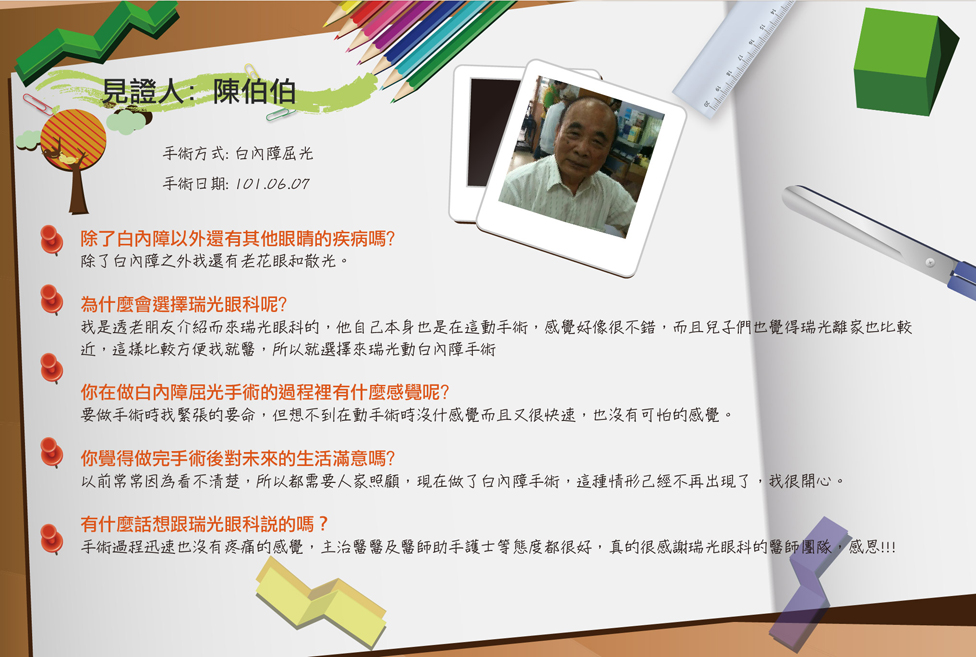 見證人：陳伯伯
手術方式: 白內障屈光
手術日期: 101.06.07
除了白內障以外還有其他眼睛的疾病嗎?
除了白內障之外我還有老花眼和散光。
為什麼會選擇瑞光眼科呢?
我是透老朋友介紹而來瑞光眼科的，他自己本身也是在這動手術，感覺好像很不錯，而且兒子們也覺得瑞光離家也比較
近，這樣比較方便我就醫，所以就選擇來瑞光動白內障手術
你在做白內障屈光手術的過程裡有什麼感覺呢?
要做手術時我緊張的要命，但想不到在動手術時沒什感覺而且又很快速，也沒有可怕的感覺。
你覺得做完手術後對未來的生活滿意嗎?
以前常常因為看不清楚，所以都需要人家照顧，現在做了白內障手術，這種情形己經不再出現了，我很開心。
有什麼話想跟瑞光眼科說的嗎？
手術過程迅速也沒有疼痛的感覺，主治醫醫及醫師助手護士等態度都很好，真的很感謝瑞光眼科的醫師團隊，感恩!!!